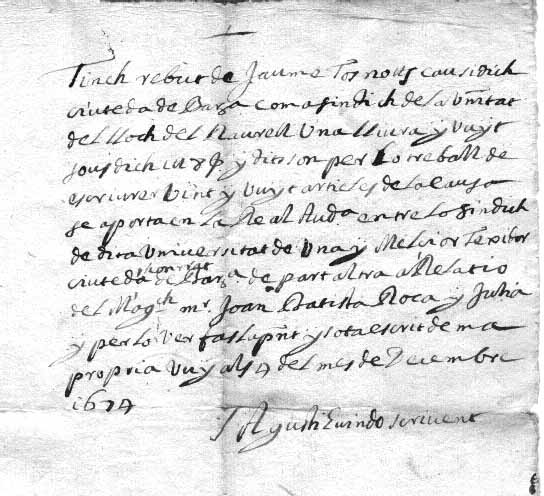 Tinch rebut de Jaume Tosnous causidich
ciutedà de Barna com a sindich de la Unitat
del lloch del Maurell Una lliura y vuyt
sous dich 1 ll 8 s y dits son per lo treball de
escriurer vint y vuyt articles de la causa
se aporta en la Real Auda entre lo sindich
de dita Universitat de Una y Melcior Texidor
ciutedà honrrat de Barna de part altra a Relatio
del Magch mr Joan Batista Roca y Julia
y per lo ver fas la pnt y sota escrit de ma
propria vuy als 17 del mes de Decembre
1674
Agusti scrivent